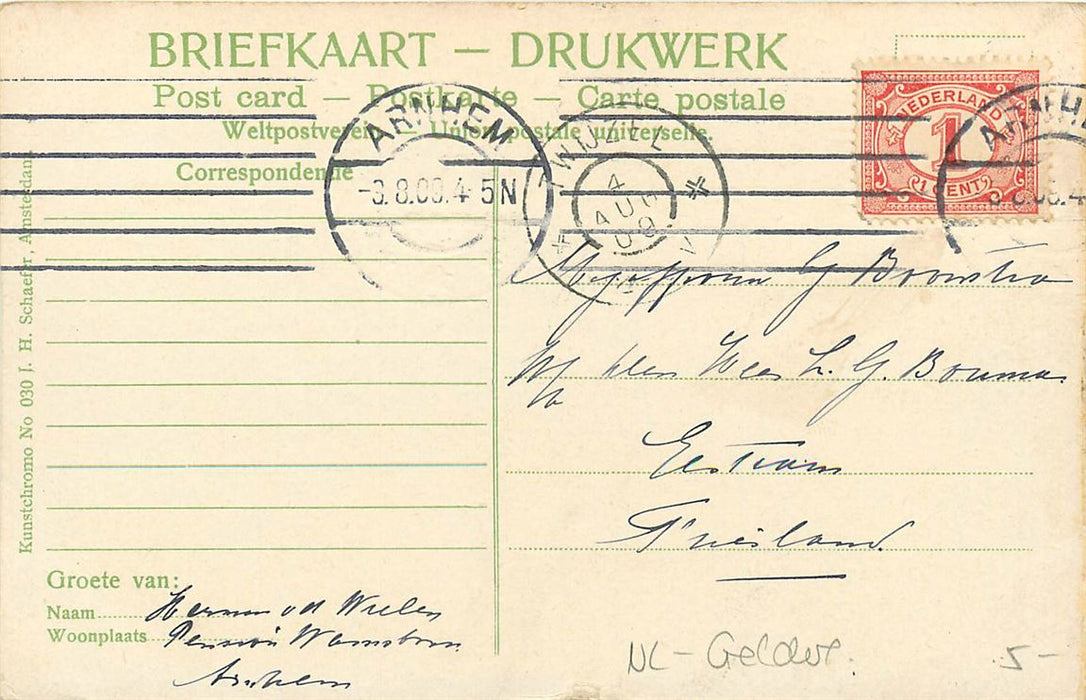 BRIEFKAART — DRUKWERK
Post card — Postkarte — Carte postale
Weltpostverein — Union postale universelle.
Correspondentie
ARNHEM
-3.8.09.4-5N
TWIJZEL
4
AUG
09
NEDERLAND
1
1 CENT
ARNHEM
Mejuffrouw G Boonstra
p/a den Heer L. G. Bouma
Eestrum
Friesland.
Kunstchromo No 030 J. H. Schaefer, Amsterdam.
Groete van:
Naam Herman v d Wielen
Woonplaats Pension Warnsborn
Arnhem
NL - Gelderl.
5-